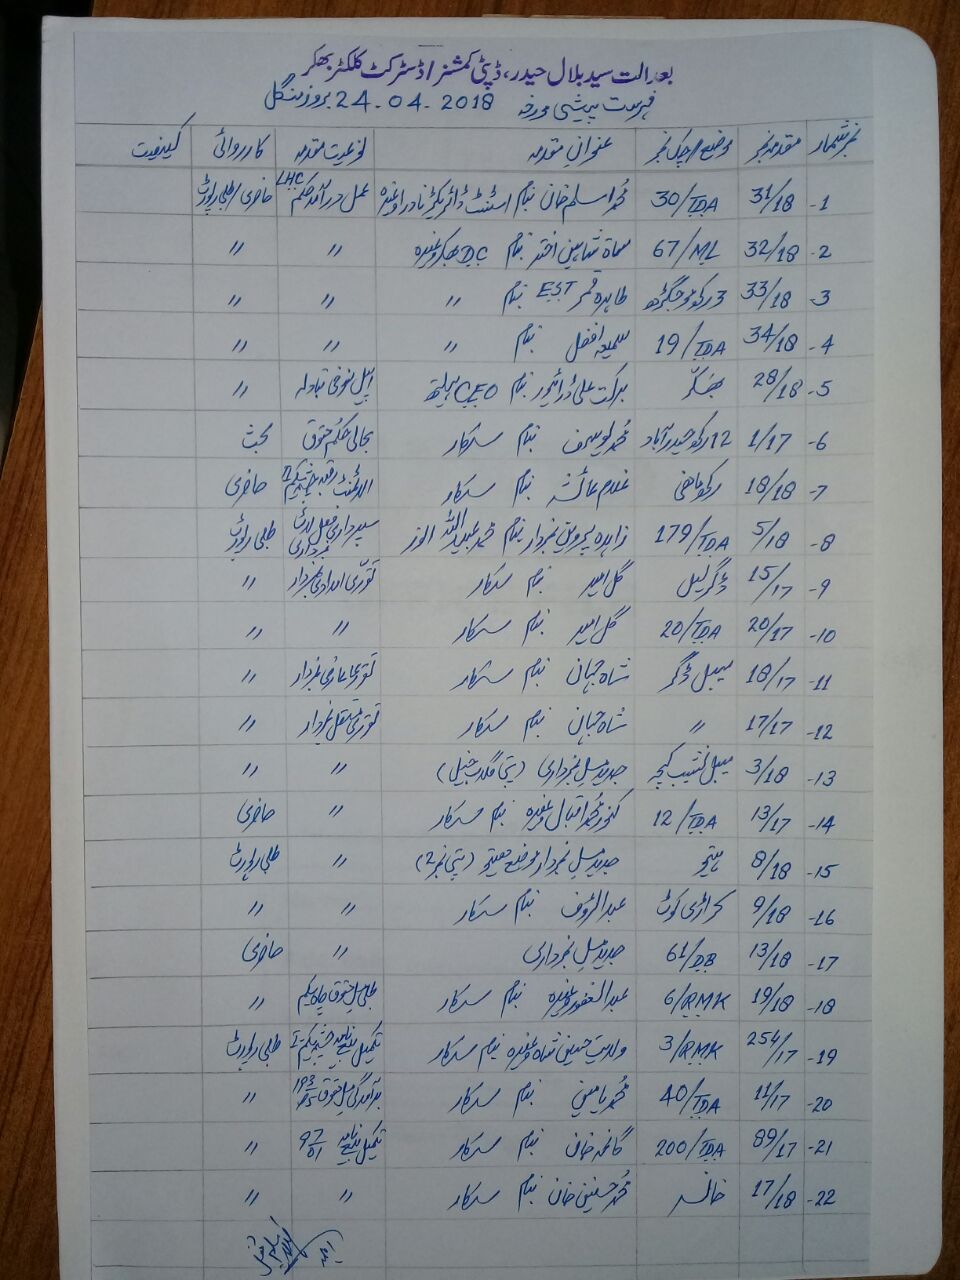 بعدالت سید بلال حیدر، ڈپٹی کمشنر / ڈسٹرکٹ کلکٹر بھکر
فہرست پیشی مورخہ 24-04-2018 بروز منگل
نمبر شمار مقدمہ نمبر موضع / چک نمبر عنوان مقدمہ نوعیت مقدمہ کارروائی کیفیت
1- 31/18 30/TDA محمد اسلم خان بنام اسسٹنٹ ڈائریکٹر نادرا وغیرہ عمل درآمد حکم LHC حاضری / طلبی رپورٹ
2- 32/18 67/ML مسماۃ شاہین اختر بنام DC بھکر وغیرہ 〃 〃
3- 33/18 طاہرہ قمر EST بنام 〃 〃 〃
4- 34/18 19/TDA سمیعہ افضل بنام 〃 〃 〃
5- 28/18 بھکر برکت علی ڈرائیور بنام CEO ہیلتھ اپیل تبادلہ 〃
6- 1/17 12 رکھ حیدر آباد محمد یوسف بنام سرکار بحالی حکم حقوق بحث
7- 18/18 غلام عائشہ بنام سرکار حاضری
8- 5/18 179/TDA زاہدہ پروین نمبردار بنام محمد عبداللہ نمبرداری طلبی رپورٹ
9- 15/17 ڈگر گل امیر بنام سرکار نمبردار 〃
10- 20/17 20/TDA گل امیر بنام سرکار 〃 〃
11- 18/17 سیبل ڈگر شاہ جہان بنام سرکار تقرری عارضی نمبردار 〃
12- 17/17 〃 شاہ جہان بنام سرکار تقرری مستقل نمبردار 〃
13- 3/18 نشیب کچہ جدید مسل نمبرداری 〃 〃
14- 13/17 12/TDA محمد اقبال وغیرہ بنام سرکار 〃 حاضری
15- 8/18 جدید مسل نمبردار موضع (پتی نمبر 2) 〃 طلبی رپورٹ
16- 9/18 کوٹ عبدالرؤف بنام سرکار 〃 〃
17- 13/18 61/DB جدید مسل نمبرداری 〃 حاضری
18- 19/18 6/RMK عبدالغفور وغیرہ بنام سرکار حقوق 〃
19- 254/17 3/RMK ولایت حسین شاہ وغیرہ بنام سرکار تکمیل بیع نامہ طلبی رپورٹ
20- 11/17 40/TDA محمد یامین بنام سرکار حقوق 〃
21- 89/17 200/TDA خان بنام سرکار تکمیل بیع نامہ 〃
22- 17/18 محمد حسنین خان بنام سرکار 〃 〃